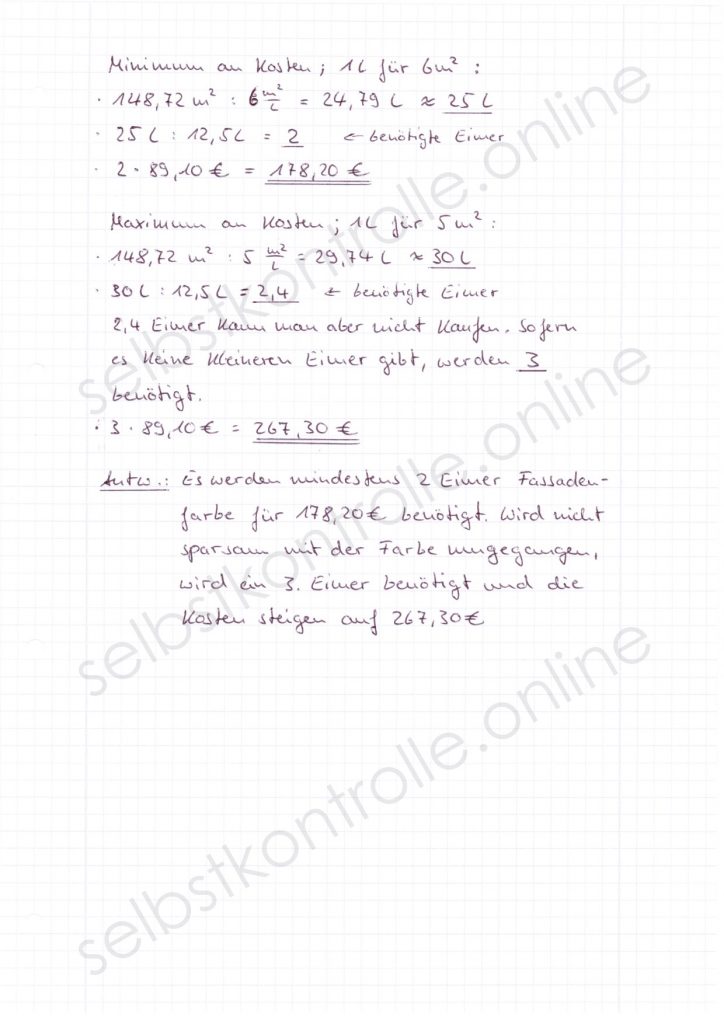 Minimum an Kosten; 1L für 6m² :
· 148,72 m² : 6 m²/L = 24,79 L ≈ 25 L
· 25 L : 12,5 L = 2 ← benötigte Eimer
· 2 · 89,10 € = 178,20 €
Maximum an Kosten; 1L für 5m² :
· 148,72 m² : 5 m²/L = 29,74 L ≈ 30 L
· 30 L : 12,5 L = 2,4 ← benötigte Eimer
2,4 Eimer kann man aber nicht kaufen. Sofern
es keine kleineren Eimer gibt, werden 3
benötigt.
· 3 · 89,10 € = 267,30 €
Antw.: Es werden mindestens 2 Eimer Fassaden-
farbe für 178,20 € benötigt. Wird nicht
sparsam mit der Farbe umgegangen,
wird ein 3. Eimer benötigt und die
Kosten steigen auf 267,30 €
selbstkontrolle.online
selbstkontrolle.online
selbstkontrolle.online